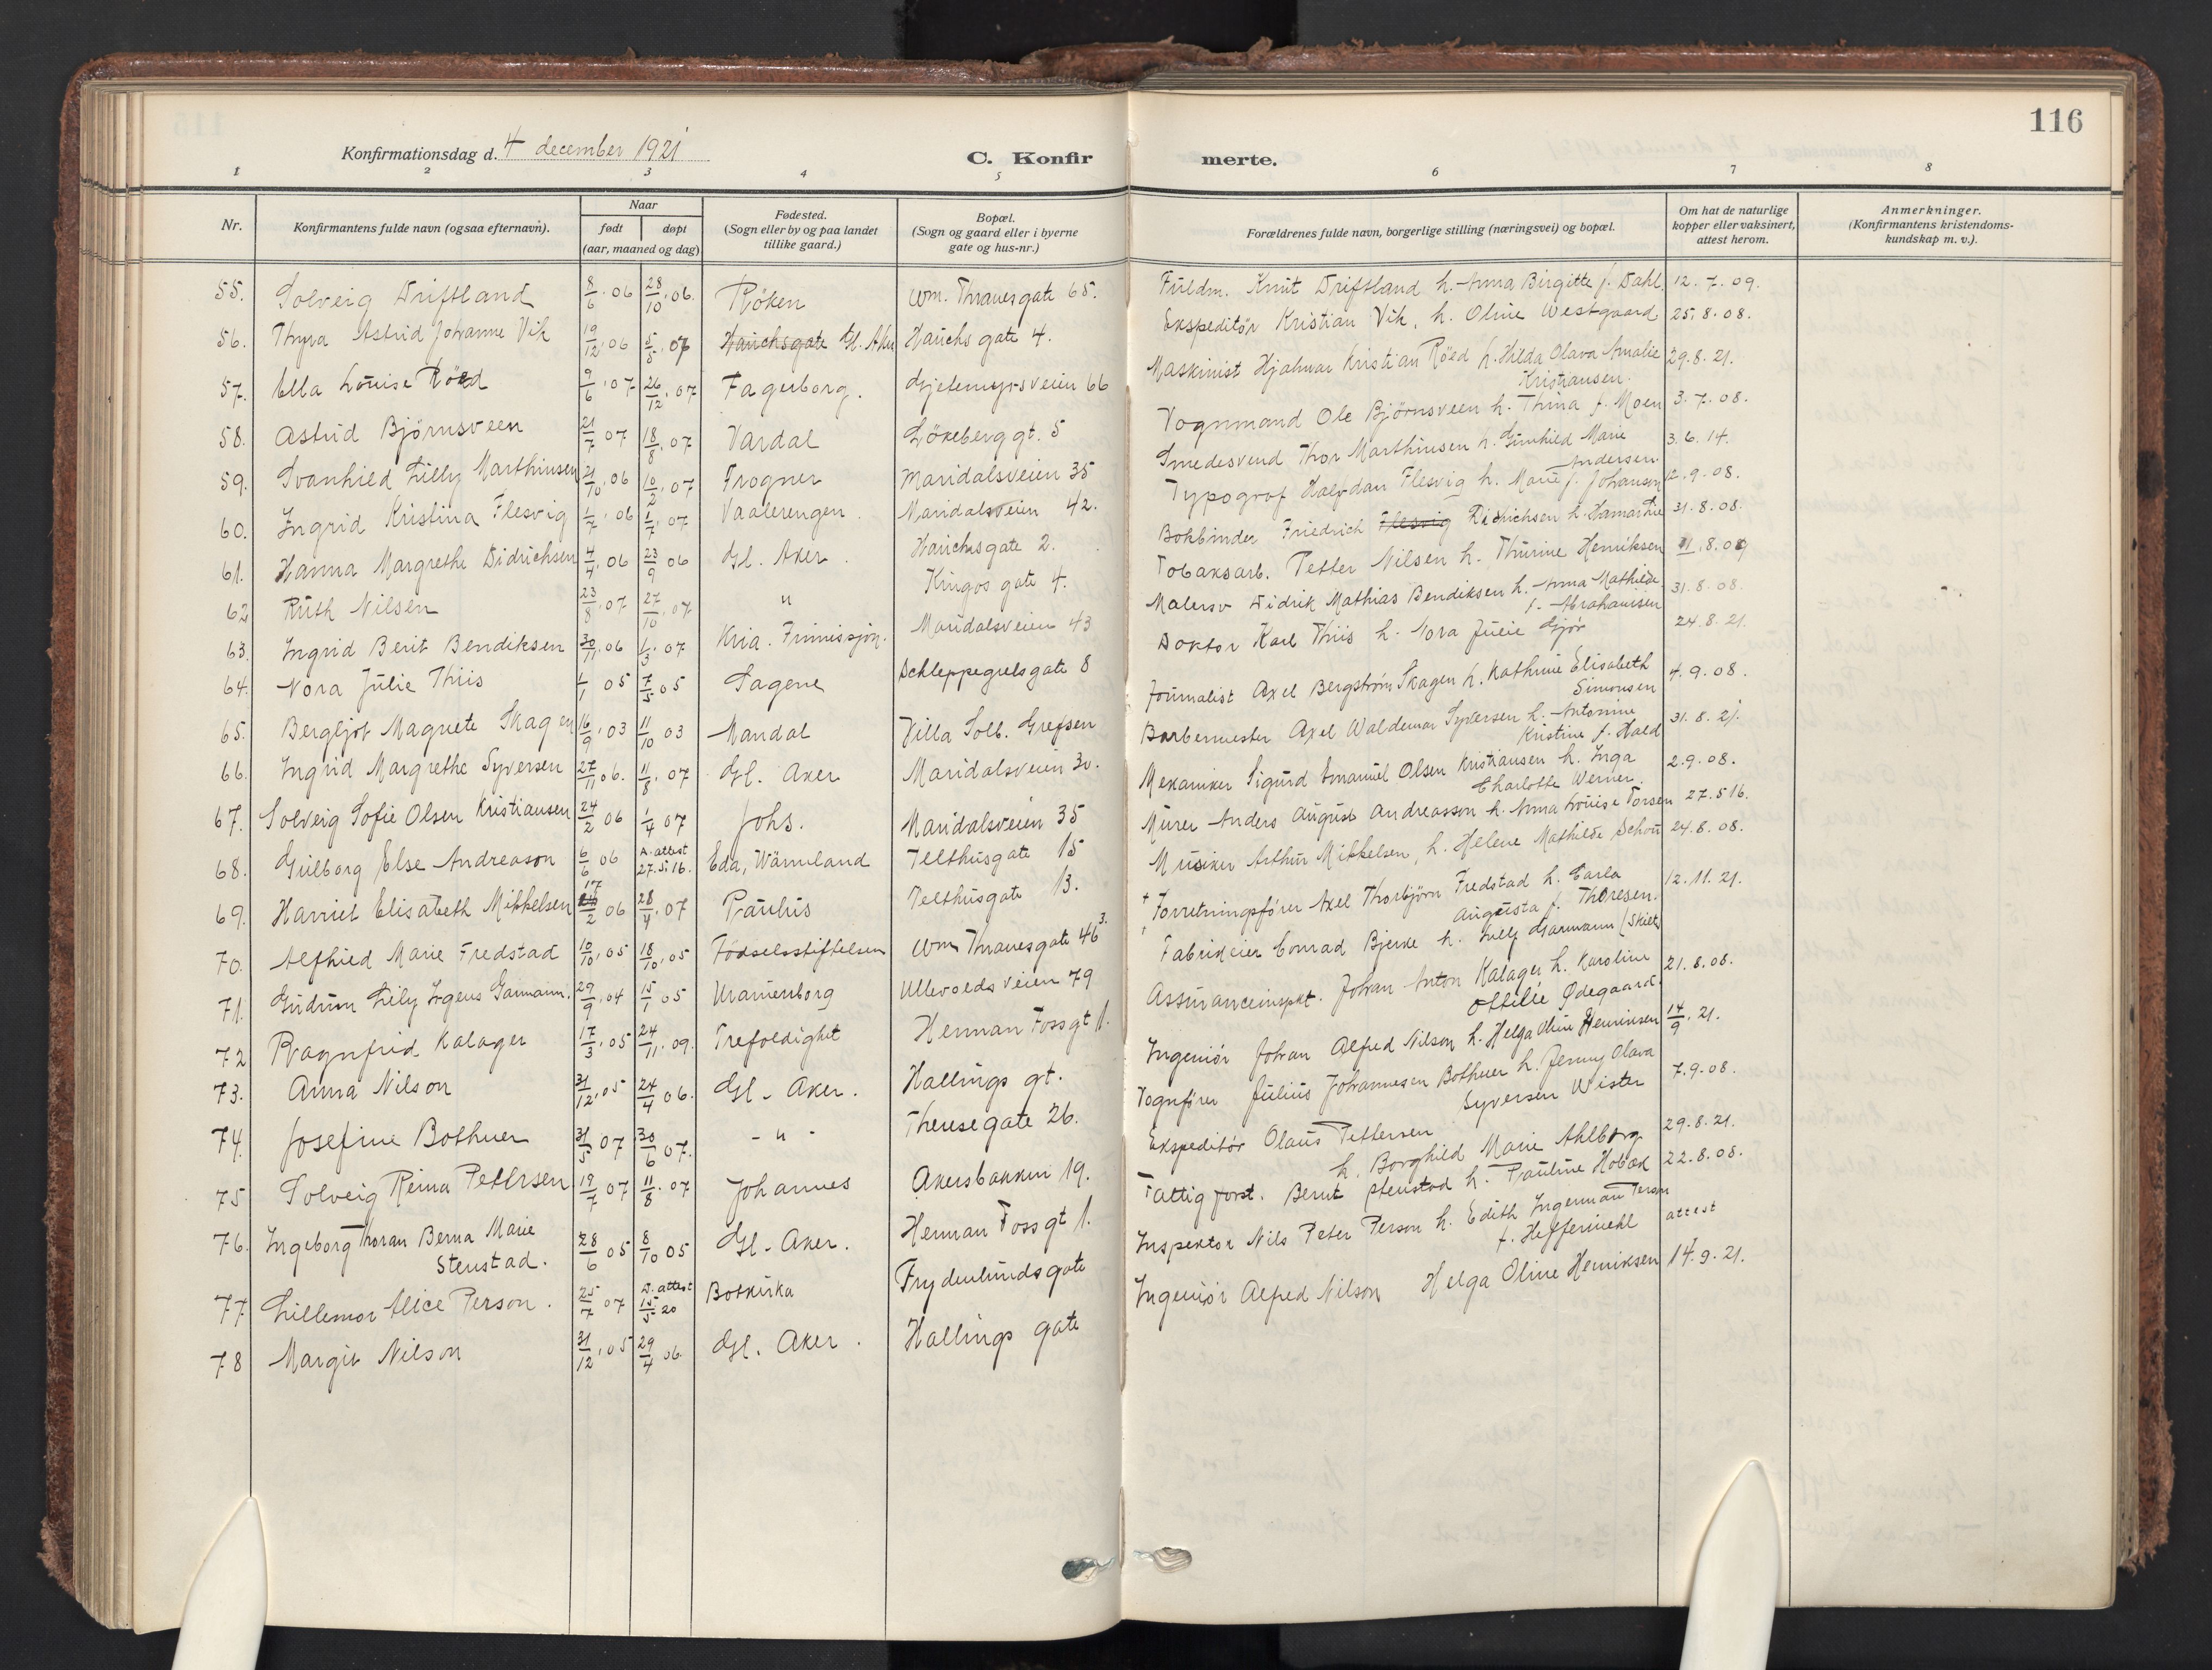 116
Konfirmationsdag d. 4 december 1921
C. Konfirmerte.
1 2 3 4 5 6 7 8
Nr.
Konfirmantens fulde navn (ogsaa efternavn).
Naar
født døpt
(aar, maaned og dag)
Fødested.
(Sogn eller by og paa landet
tillike gaard.)
Bopæl.
(Sogn og gaard eller i byerne
gate og hus-nr.)
Forældrenes fulde navn, borgerlige stilling (næringsvei) og bopæl.
Om hat de naturlige
kopper eller vaksinert,
attest herom.
Anmerkninger.
(Konfirmantens kristendoms-
kundskap m. v.).
55. Solveig Driftland 8/6.06 28/10.06. Røken Wm. Thranesgate 65. Fuldm. Knut Driftland h. Anna Birgitte f. Dahl. 12.7.09.
56. Thyra Astrid Johanne Vik 19/12.06 5/5.07 Hauchsgate Gl. Aker Hauchs gate 4. Ekspeditør Kristian Vik, h. Oline Westgaard 25.8.08.
57. Ella Louise Røed 9/6.07 26/12.07 Fagerborg. Gjetemyrsveien 66 Maskinist Hjalmar Kristian Røed h. Hilda Olava Amalie 29.8.21.
Kristiansen.
58. Astrid Bjørnsveen 21/7 07 18/8.07 Vardal Løkeberggt. 5 Vognmand Ole Bjørnsveen h. Thina f. Moen 3.7.08.
59. Svanhild Lilly Marthinsen 21/10.06 10/2.07 Frogner Maridalsveien 35 Smedesvend Thor Marthinsen h. Gunhild Marie 3.6.14.
Andersen.
60. Ingrid Kristina Flesvig 1/7.06 1/7.07 Vaalerengen. Maridalsveien 42. Typograf Halvdan Flesvig h. Marie f. Johanson 12.9.08.
61. Hanna Margrethe Didrichsen 4/4.06 23/9 06 Gl. Aker. Hauchsgate 2. Bokbinder Friedrich Flesvig Didrichsen h. 31.8.08.
62 Ruth Nilsen 23/8.07 27/10.07 " Kingos gate 4. Tobaksarb. Petter Nilsen h. Thurine Henriksen 11.8.09
63. Ingrid Berit Bendiksen 30/11.06 1/3.07 Kria. Maridalsveien 43 Malersv Didrik Mathias Bendiksen h. Anna Mathilde 31.8.08.
f. Abrahamsen
64. Nora Julie Thiis 1/1 05 7/5.05 Sagene Schleppegrelsgate 8 Doktor Karl Thiis h. Nora Julie Gjør 24.8.21.
65. Bergljot Magnete Skagen 16/9.03 11/10 03 Mandal Villa Solb. Grefsen Journalist Axel Bergstrøm Skagen h. Kathrine Elisabeth 4.9.08.
Simonsen
66. Ingrid Margrethe Syversen 27/11 06. 11/8.07 Gl. Aker Maridalsveien 30. Barbermester Axel Waldemar Syversen h. Antonine 31.8.21.
Kristine f. Hald
67. Solveig Sofie Olsen Kristiansen 24/2 06 1/4 07 Johs. Maridalsveien 35 Mekaniker Sigurd Emanuel Olsen Kristiansen h. Inga 2.9.08.
Charlotte Werner.
68. Gulborg Else Andreason 6/6 06 D. attest 27.5.16. Eda, Värmland Telthusgate 15 Murer Anders August Andreasson h. Anna Louise Torsen 27.5 16.
69. Harriet Elisabeth Mikkelsen 17/2 06 28/4.07 Paulus Telthusgate 13. Musiker Arthur Mikkelsen, h. Helene Mathilde Schou 24.8.08.
70. Alfhild Marie Fredstad 10/10.05 18/10.05 Fødselsstiftelsen Wm Thranesgate 46 3. † Forretningsfører Axel Thorbjørn Fredstad h. Carla 12.11.21.
Augusta f. Thoresen.
71. Gudrun Lily Irgens Garmann. 29/9.04 15/1.05 Uranienborg Ullevoldsveien 79 Fabrikeier Conrad Bjerke h. Lully Garmann (Skilt)
72 Ragnfrid Kalager 17/3.05 24/11.09. Trefoldighet Herman Fossgt 1. Assuranceinspekt. Johan Anton Kalager h. Karoline 21.8.08.
Ottilie Ødegaard.
73. Anna Nilson 31/12.05 24/4 06. Gl. Aker. Hallings gt. Ingeniør Johan Alfred Nilson h. Helga Oline Henriksen 14/9.21.
74. Josefine Bothner 31/5 07 30/6 07. - " - Theresegate 26. Vognfører Julius Johannesen Bothner h. Jenny Olava 7.9.08.
Syversen Wister
75 Solveig Reina Pettersen 19/7 07 11/8.07 Johannes Akersbakken 19. Ekspeditør Olaus Pettersen 29.8.21.
h. Borghild Marie Ahlborg
76. Ingeborg Thoran Berna Marie
Stenstad. 28/6 05 8/10 05 Gl. Aker. Herman Fossgt 1. Fattigforst. Bernt Stenstad h. Pauline Hobæk 22.8.08.
77 Lillemor Alice Person. 25/7 07 D. attest 15/5 20 Botkirka Frydenlundsgate Inspektør Nils Peter Person h. Edith Ingerman Person attest
f. Heffermehl
78 Margit Nilson 31/12.05 29/4 06. Gl. Aker. Hallings gate Ingeniør Alfred Nilson Helga Oline Henriksen 14.9.21.